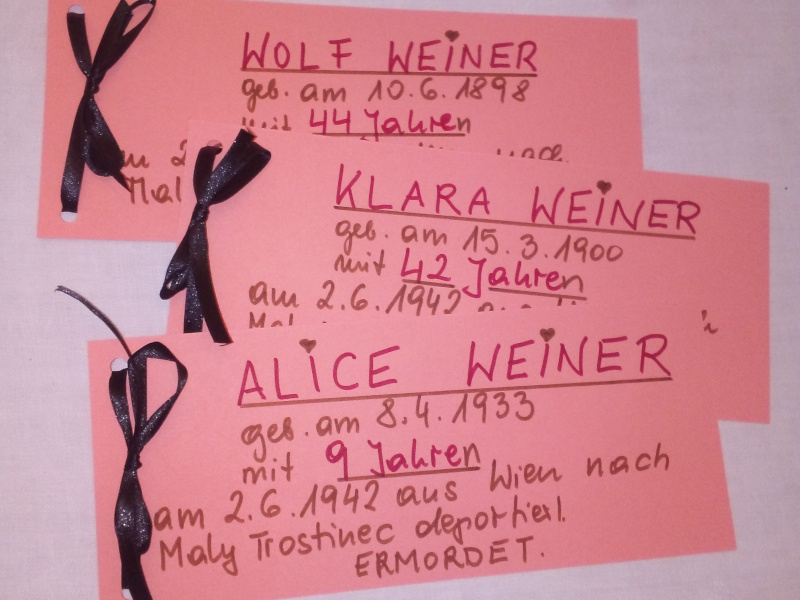 WOLF WEINER
geb. am 10.6.1898
mit 44 Jahren
nach
Mal
KLARA WEINER
geb. am 15.3.1900
mit 42 Jahren
am 2.6.1942
ALICE WEINER
geb. am 8.4.1933
mit 9 Jahren
am 2.6.1942 aus Wien nach
Maly Trostinec deportiert.
ERMORDET.